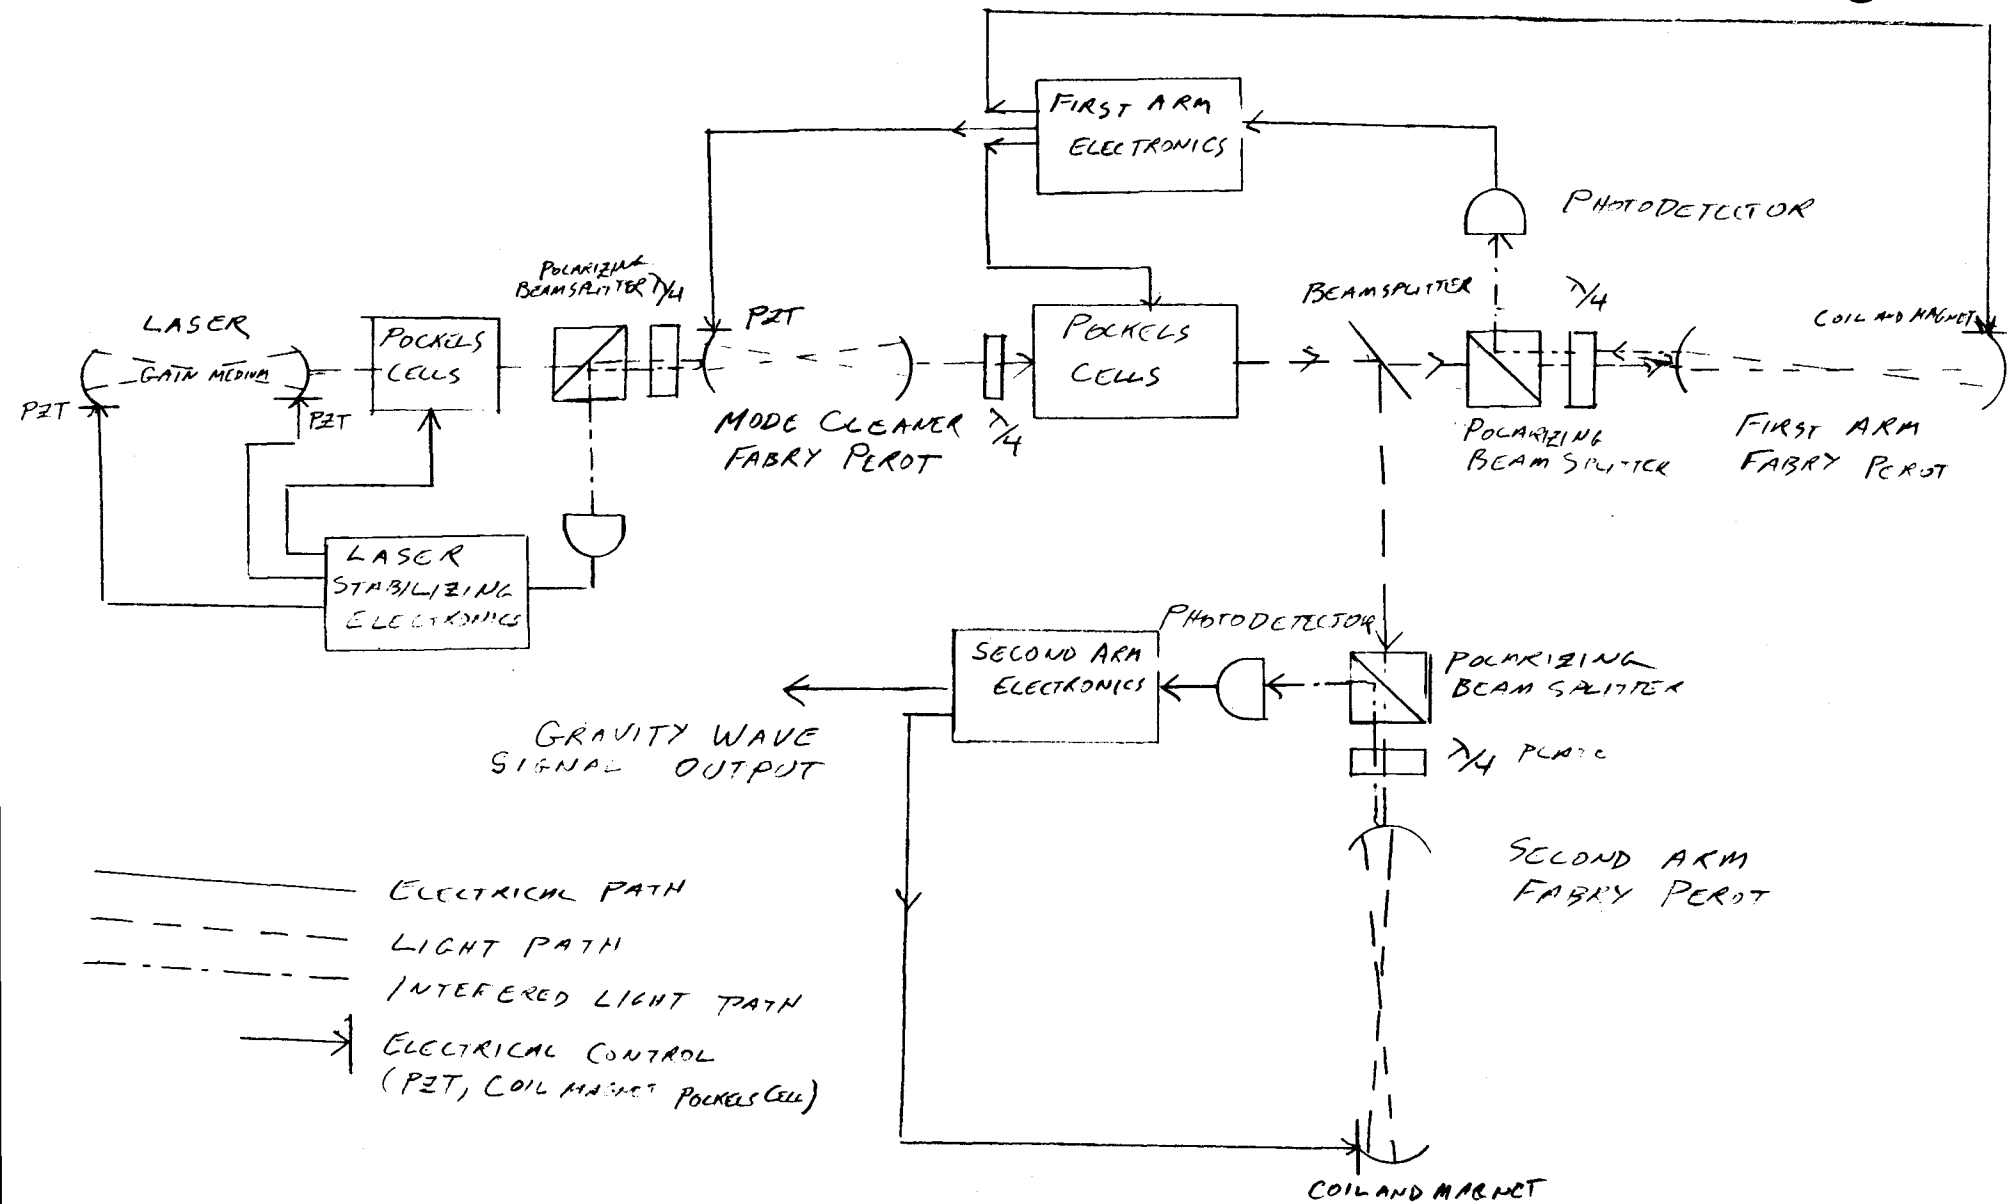 FIRST ARM
ELECTRONICS
PHOTODETECTOR
POLARIZING
BEAMSPLITTER λ/4
PZT
BEAMSPLITTER
λ/4
COIL AND MAGNET
LASER
GAIN MEDIUM
PZT
PZT
POCKELS
CELLS
POCKELS
CELLS
MODE CLEANER
FABRY PEROT
λ/4
POLARIZING
BEAM SPLITTER
FIRST ARM
FABRY PEROT
LASER
STABILIZING
ELECTRONICS
PHOTODETECTOR
SECOND ARM
ELECTRONICS
POLARIZING
BEAM SPLITTER
λ/4 PLATE
GRAVITY WAVE
SIGNAL OUTPUT
SECOND ARM
FABRY PEROT
ELECTRICAL PATH
LIGHT PATH
INTEFERED LIGHT PATH
ELECTRICAL CONTROL
(PZT, COIL MAGNET POCKELS CELL)
COIL AND MAGNET